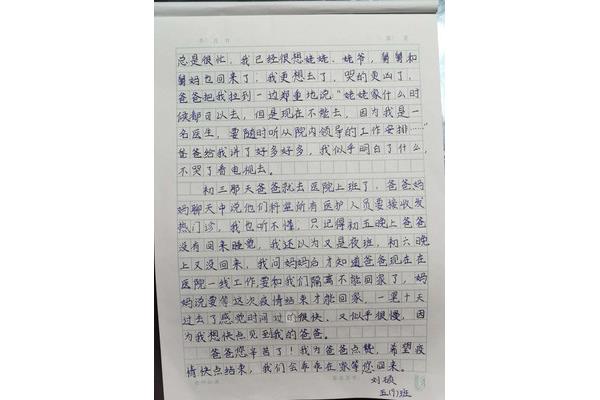 总是很忙，我已经很想姥姥、姥爷，舅舅和
舅妈也回来了，我更想去了，哭的更凶了，
爸爸把我拉到一边郑重地说"姥姥家什么时
候都可以去，但是现在不能去，因为我是一
名医生，要随时听从院内领导的工作安排……"
爸爸给我讲了好多好多，我似乎明白了什么，
不哭了看电视去。
初三那天爸爸就去医院上班了，爸爸妈
妈聊天中说他们科室所有医护人员要接收发
热门诊，我也听不懂，只记得初五晚上爸爸
没有回来睡觉，我还以为又是夜班，初六晚
上又没回来，我问妈妈后才知道爸爸现在在
医院一线工作要和我们隔离不能回家了，妈
妈说要等这次疫情结束才能回家，一晃十天
过去了感觉时间过的很快，又似乎很慢，因
为我想快点见到我的爸爸。
爸爸您辛苦了！我为爸爸点赞，希望疫
情快点结束，我们会乖乖在家等您回来。
五(1)班